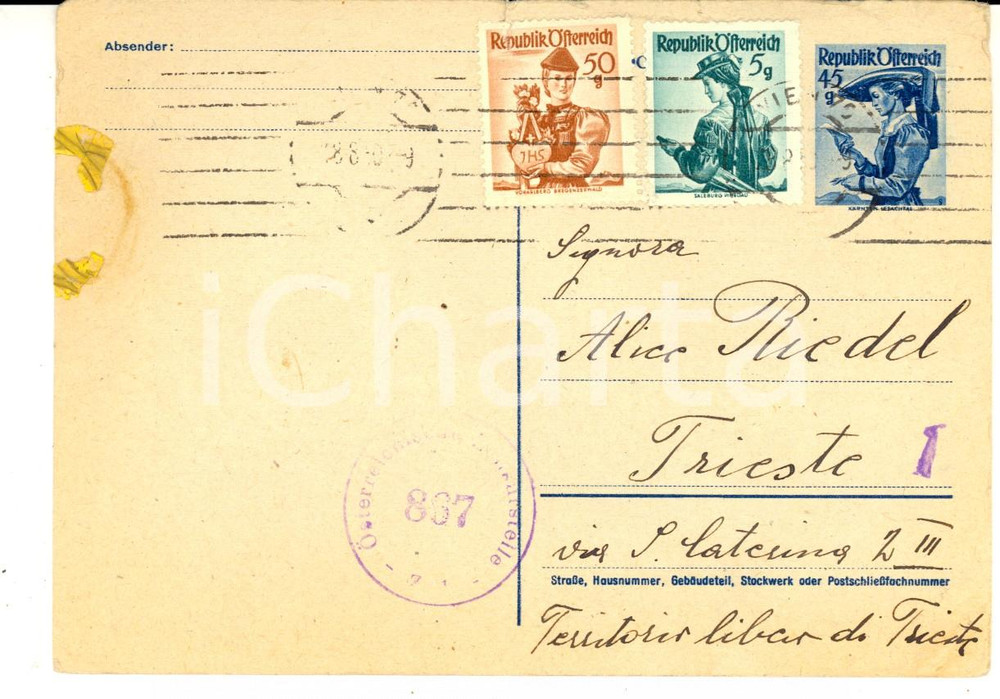 Absender:
Republik Österreich
50
g
JHS
VORARLBERG BREGENZERWALD
Republik Österreich
5
g
SALZBURG PONGAU
Republik Österreich
45
g
KÄRNTEN LESACHTAL
WIEN
Signora
Alice Riedel
Trieste
1
via S. Caterina 2 III
Straße, Hausnummer, Gebäudeteil, Stockwerk oder Postschließfachnummer
Territorio libero di Trieste
Österreichische Zensurstelle
897
iCharta